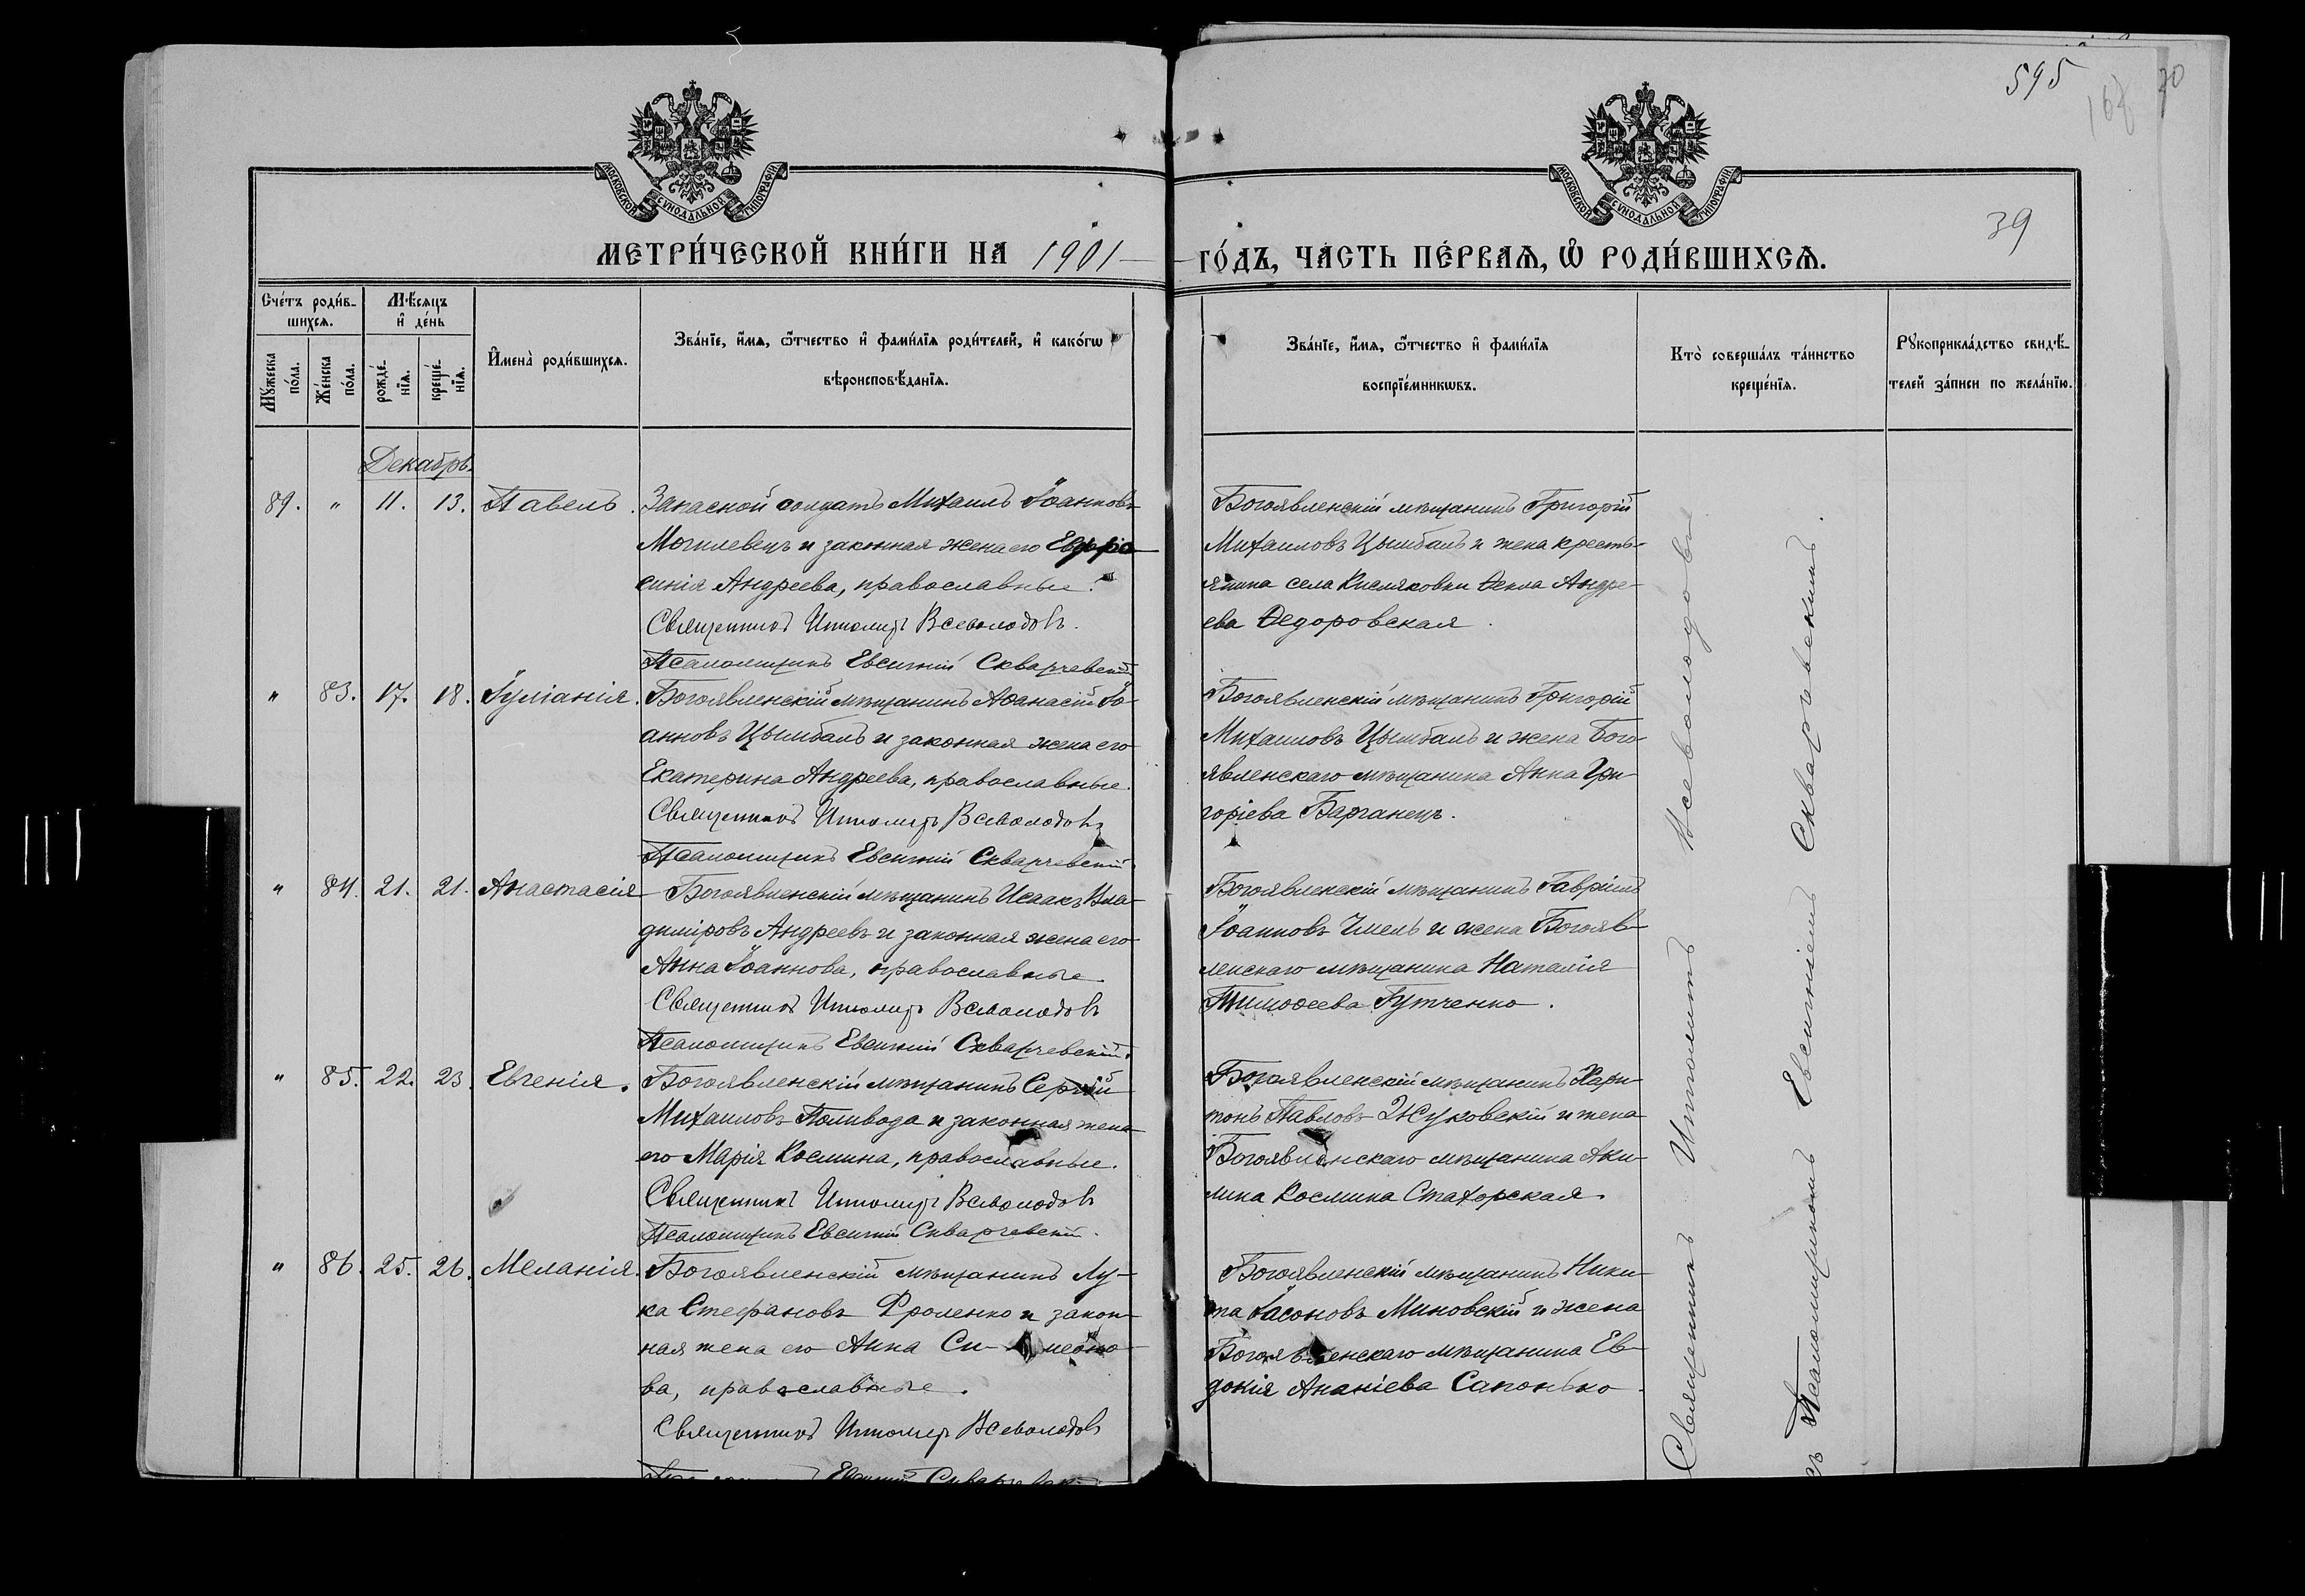 595
168
70
39
МОСКОВСКОЙ СУНОДАЛЬНОЙ ТИПОГРАФІИ
МОСКОВСКОЙ СУНОДАЛЬНОЙ ТИПОГРАФІИ
МЕТРИ́ЧЕСКОЙ КНИ́ГИ НА 1901 ГО́ДЪ, ЧА́СТЬ ПЕ́РВАѦ, Ѡ҆ РОДИ́ВШИХСѦ.
Сче́тъ роди́вшихсѧ.
Мꙋ́жеска по́ла.
Же́нска по́ла.
Мѣ́сѧцъ и҆ де́нь
рожде́нїѧ.
креще́нїѧ.
И҆мена̀ роди́вшихсѧ.
Зва́нїе, и҆́мѧ, ѻ҆́тчество и҆ фами́лїѧ роди́телей, и҆ како́гѡ
вѣроисповѣ́данїѧ.
Зва́нїе, и҆́мѧ, ѻ҆́тчество и҆ фами́лїѧ
воспрїе́мникѡвъ.
Кто̀ соверша́лъ та́инство
креще́нїѧ.
Рꙋкоприкла́дство свидѣ́-
телей за́писи по жела́нїю.
Декабрь
89. " 11. 13. Павелъ.
Запасной солдатъ Михаилъ Іоанновъ
Могилевецъ и законная жена его Евфро-
синія Андреева, православные.
Священникъ Ипполитъ Всеволодовъ.
Псаломщикъ ЕвсигнійСкварчевскій
Богоявленскій мѣщанинъ Григорій
Михаиловъ Цымбалъ и жена кресть-
янина села Кисляковки Ѳекла Андре-
ева Ѳедоровская.
" 83. 17. 18. Іуліанія.
Богоявленскій мѣщанинъ Аѳанасій Іо-
анновъ Цымбалъ и законная жена его
Екатерина Андреева, православные.
Священникъ Ипполитъ Всеволодовъ
Псаломщикъ Евсигній Скварчевскій
Богоявленскій мѣщанинъ Григорій
Михаиловъ Цымбалъ и жена Бого-
явленскаго мѣщанина Анна Гри-
горіева Барганецъ.
" 84. 21. 21. Анастасія
Богоявленскій мѣщанинъ Исаакъ Вла-
диміровъ Андреевъ и законная жена его
Анна Іоаннова, православные.
Священникъ Ипполитъ Всеволодовъ
Псаломщикъ Евсигній Скварчевскій.
Богоявленскій мѣщанинъ Гавріилъ
Іоанновъ Чмель и жена Богояв-
ленскаго мѣщанина Наталія
Тимоѳеева Гутченко.
" 85. 22. 23. Евгенія.
Богоявленскій мѣщанинъ Сергій
Михаиловъ Поливода и законная жена
его Марія Космина, православные.
Священникъ Ипполитъ Всеволодовъ
Псаломщикъ Евсигній Скварчевскій.
Богоявленскій мѣщанинъ Хари-
тонъ Павловъ Жуковскій и жена
Богоявленскаго мѣщанина Аки-
лина Космина Стахорская.
" 86. 25. 26. Меланія.
Богоявленскій мѣщанинъ Лу-
ка Стефановъ Фроленко и закон-
ная жена его Анна Си- меоно-
ва, православные.
Священникъ Ипполитъ Всеволодовъ
Псаломщикъ Евсигній Скварчевскій
Богоявленскій мѣщанинъ Ники-
та Іасоновъ Миновскій и жена
Богоявленскаго мѣщанина Ев-
докія Ананіева Сапонько.
Священникъ Ипполитъ Всеволодовъ
съ Псаломщикомъ Евсигніемъ Скварчевскимъ.